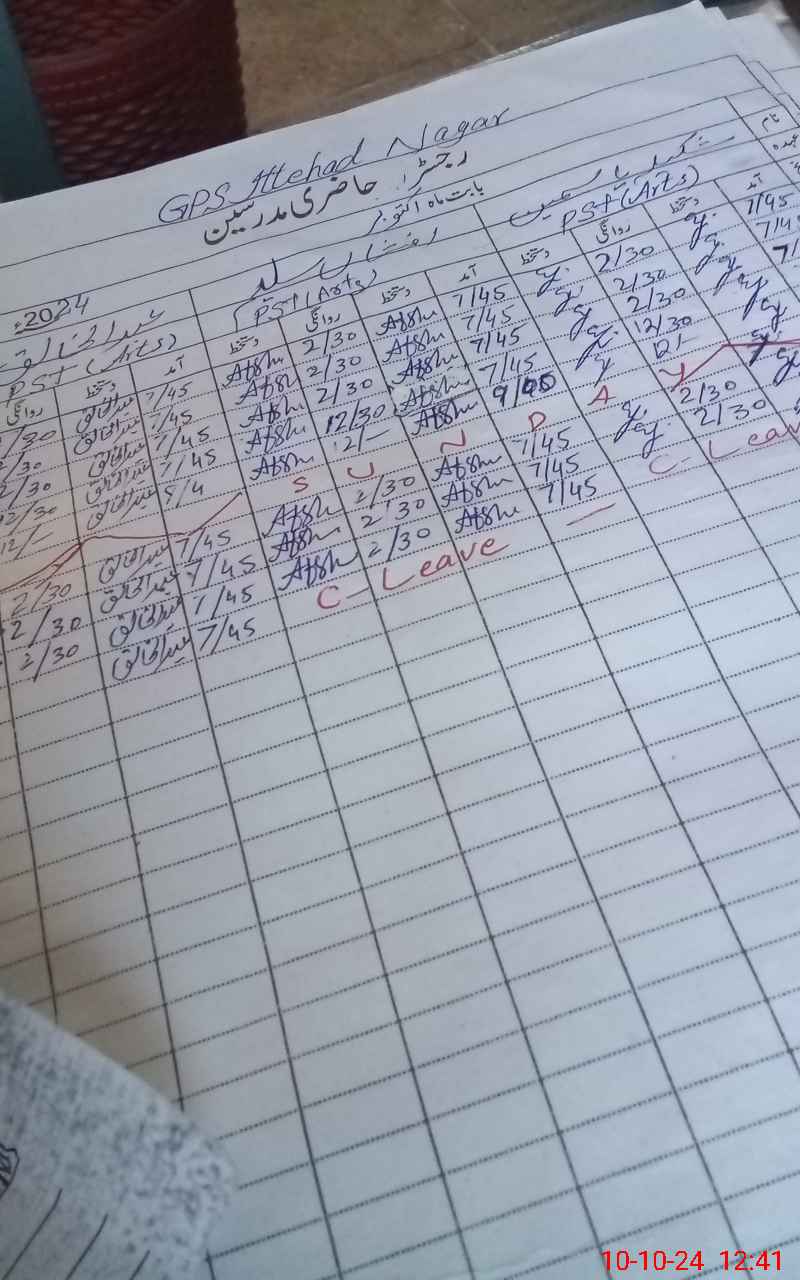 GPS Ittehad Nagar
رجسٹر حاضری مدرسین
بابت ماہ اکتوبر 2024ء
نام
عہدہ
عبدالخالق
PST (Arts)
افشاں
PST (Arts)
PST (Arts)
روانگی دستخط آمد دستخط روانگی دستخط آمد دستخط روانگی دستخط آمد
2/30 عبدالخالق 7/45 Afshu 2/30 Afshu 7/45 2/30 7/45
2/30 عبدالخالق 7/45 Afshu 2/30 Afshu 7/45 2/30 7/45
2/30 عبدالخالق 7/45 Afshu 2/30 Afshu 7/45 2/30
12/30 عبدالخالق 7/45 Afshu 12/30 Afshu 7/45 12/30
12/- عبدالخالق Afshu 12/- Afshu
SUNDAY
2/30 عبدالخالق 7/45 Afshu 2/30 Afshu 7/45 2/30
2/30 عبدالخالق 7/45 Afshu 2/30 Afshu 7/45 2/30
2/30 عبدالخالق 7/45 Afshu 2/30 Afshu 7/45 C-Leave
عبدالخالق 7/45 C-Leave —
10-10-24 12:41